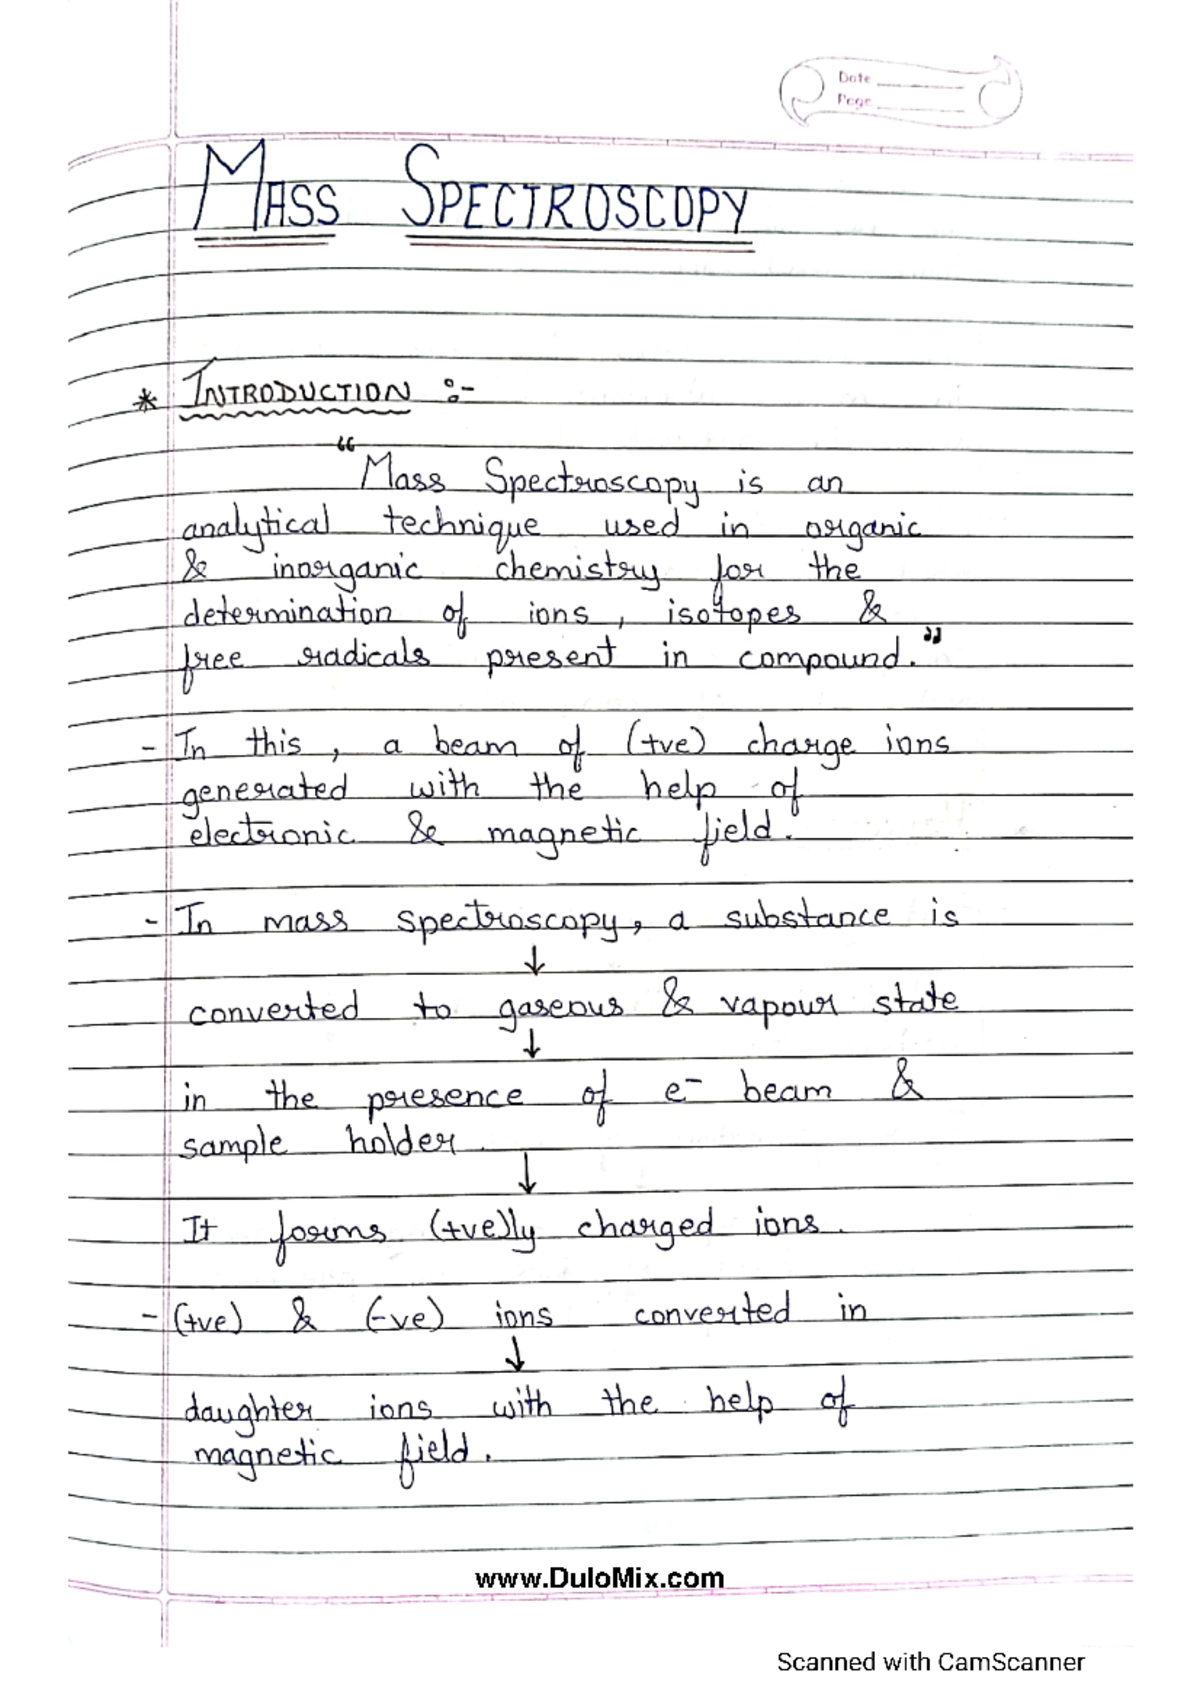 Date
Page
MASS SPECTROSCOPY
* INTRODUCTION :-
"Mass Spectroscopy is an
analytical technique used in organic
& inorganic chemistry for the
determination of ions, isotopes &
free radicals present in compound."
- In this, a beam of (+ve) charge ions
generated with the help of
electronic & magnetic field.
- In mass spectroscopy, a substance is
↓
converted to gaseous & vapour state
↓
in the presence of e⁻ beam &
sample holder.
↓
It forms (+ve)lly charged ions.
- (+ve) & (-ve) ions converted in
↓
daughter ions with the help of
magnetic field.
www.DuloMix.com
Scanned with CamScanner